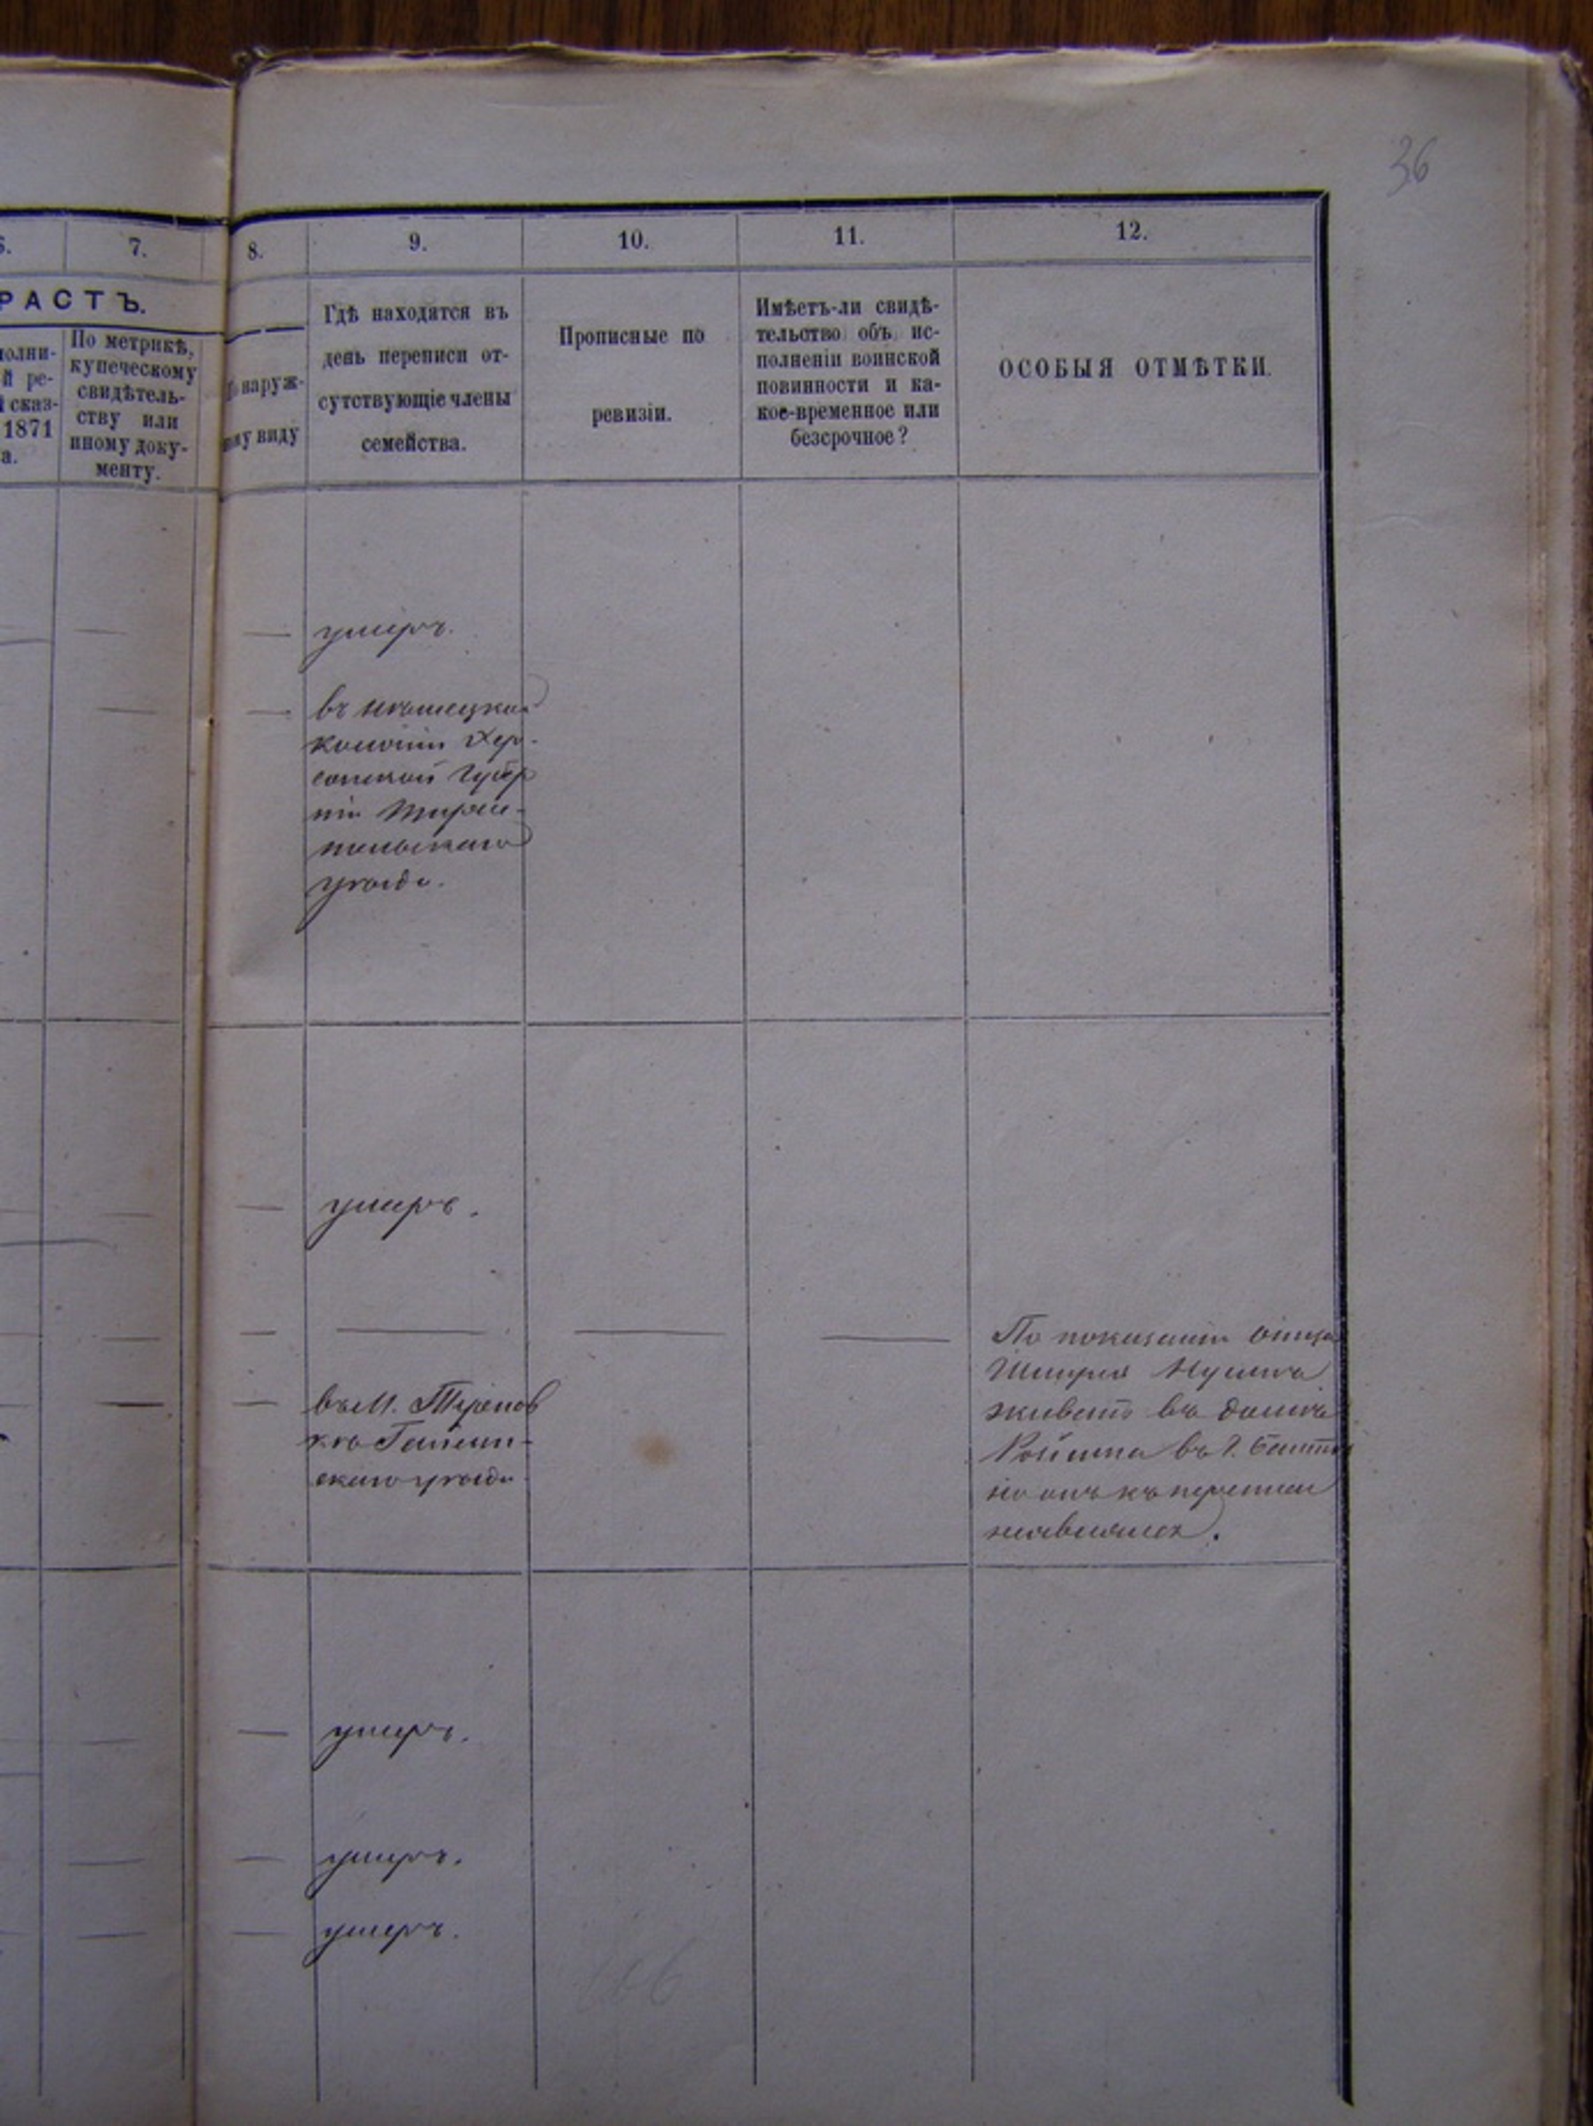 36
6.
7.
8.
9.
10.
11.
12.
РАСТЪ.
полни-
й ре-
сказ-
1871
а.
По метрикѣ,
купеческому
свидѣтель-
ству или
иному доку-
менту.
По наруж-
ному виду
Гдѣ находятся въ
день переписи от-
сутствующіе члены
семейства.
Прописные по
ревизіи.
Имѣетъ-ли свидѣ-
тельство объ ис-
полненіи воинской
повинности и ка-
кое-временное или
безсрочное?
ОСОБЫЯ ОТМѢТКИ.
умеръ.
въ нѣмецкой
колоніи Хер-
сонской Губер
ніи Тирас-
польскаго
уѣзда.
умеръ.
въ М. Терnов
кѣ Гайсин-
скаго уѣзда
По показанію отца
Шмуля
живетъ въ домѣ
въ г. Балтѣ
но онъ къ переписи
неявился.
умеръ.
умеръ.
умеръ.
166